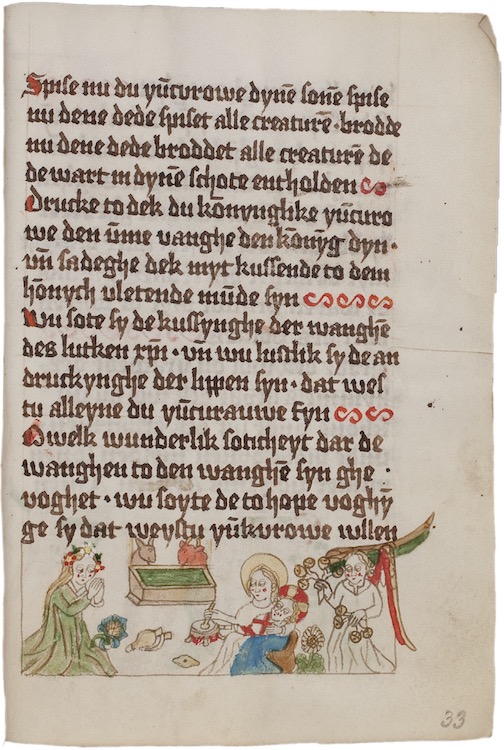 Spise nu du yu̅curowe dyne̅ sone̅ spise
nu dene dede spiset alle creature̅ · brodde
nu dene dede broddet alle creature̅ de
de wart in dyne̅ schote entholden
Drucke to dek du ko̅nynglike yu̅curo
we den u̅me vanghe den ko̅ny̅g dyn ·
vn̅ sadeghe dek myt kussende to dem
ho̅nych vletende mu̅de syn
Wu sote sy de kussynghe der wanghe̅
des lutken xpi̅ · vn̅ wu lustlik sy de an
druckynghe der lippen syn · dat wes
tu alleyne du yu̅curauwe fyn
O welk wunderlik soticheyt dar de
wanghen to den wanghe̅ syn ghe
voghet · wu soyte de to hope voghy̅
ge sy dat weystu yu̅kvrowe wllen
33